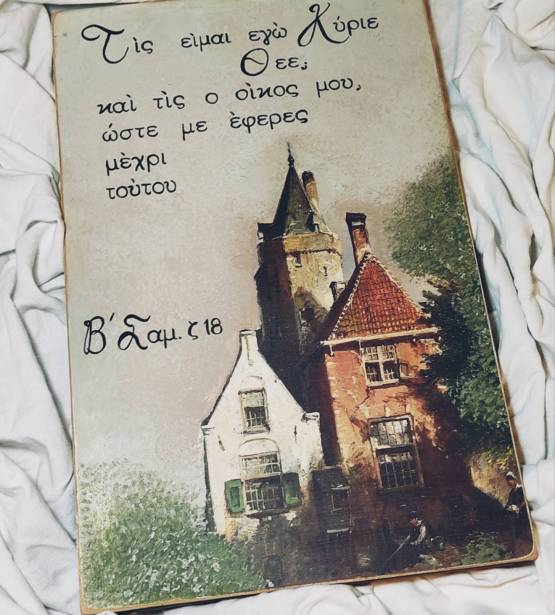 Τὶς εἰμαι εγὼ Κύριε
Θεε;
καὶ τὶς ο οἶκος μου,
ώστε με ἐφερες
μὲχρι
τούτου
Β΄ Σαμ. ζ 18